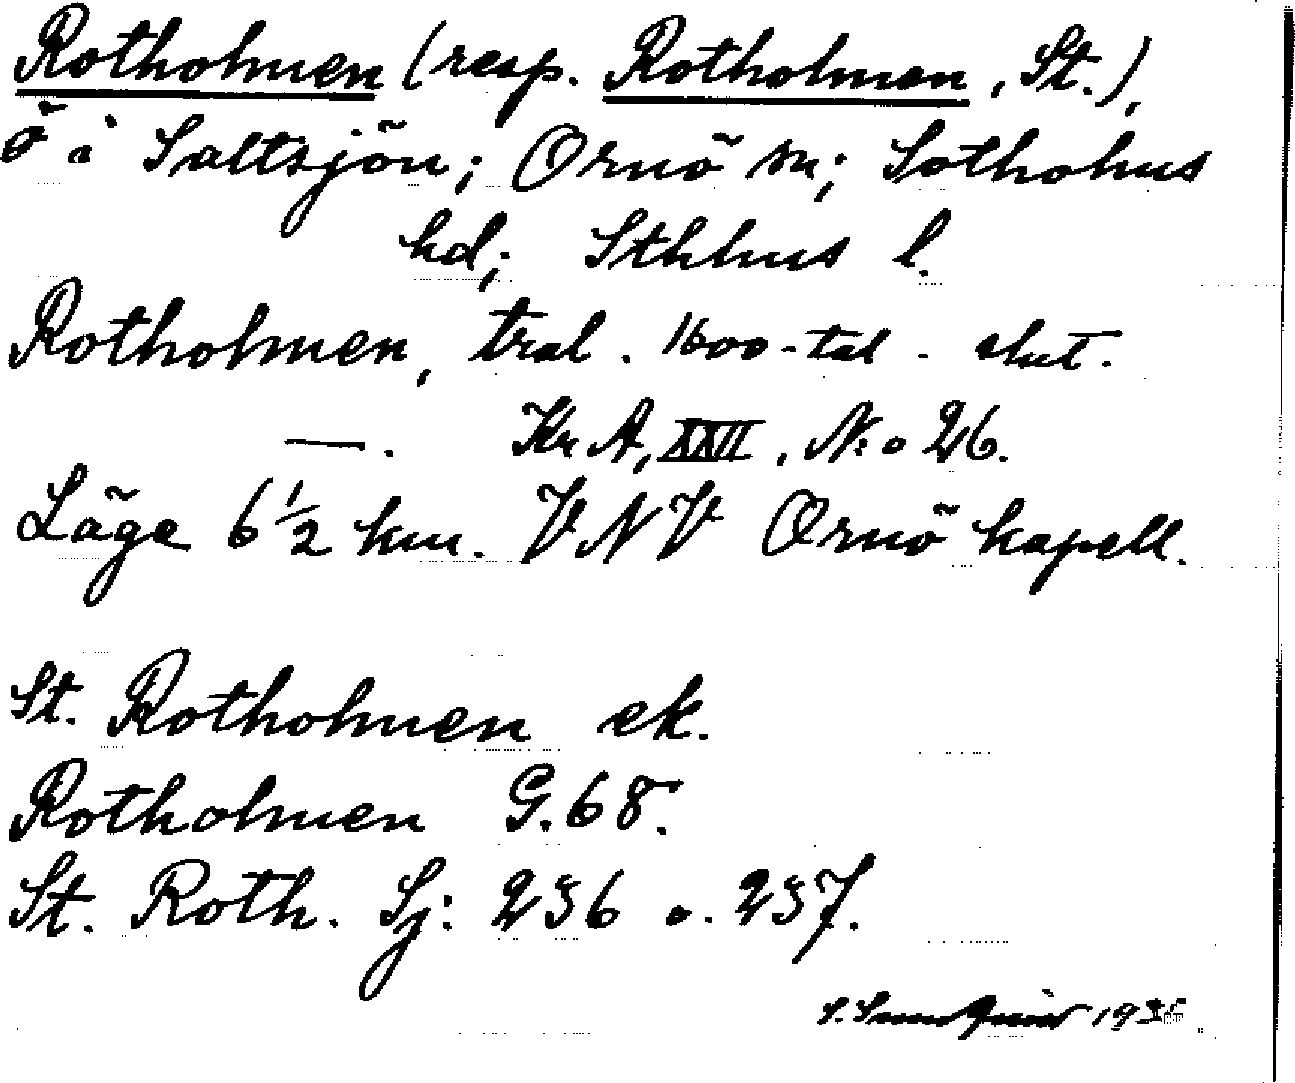 Rotholmen (resp. Rotholmen, St.),
ö i Saltsjön; Ornö sn; Sotholms
hd; Sthlms l.
Rotholmen, tral. 1600-tal - slut.
—. Kr A, XXII, N:o 26.
Läge 6 1/2 km. VNV Ornö kapell.
St. Rotholmen ek.
Rotholmen G. 68.
St. Roth. Sj: 236 o. 237.
S. 193